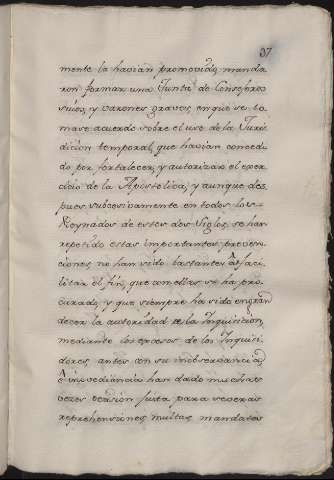 37
mente la havian promovido, manda
ron formar una Junta de Consejeros
suios, y varones graves, en que se to
mase acuerdo sobre el uso de la Juris
dicion temporal, que havian concedi
do por fortalecer, y autorizar el exer
cicio de la Apostolica, y aunque des
pues subcesivamente en todos los
Reynados de estos dos Siglos, se han
repetido estas importantes preven
ciones, no han sido bastantes à faci
litar el fin, que con ellas se ha pro
curado, y que siempre ha sido engran
decer la autoridad de la Inquisicion,
mediante los excesos de los Inquisi
dores, antes con su inobservancia,
è inovediencia han dado muchas
vezes ocasion justa para severas
reprehensiones multas, mandatos